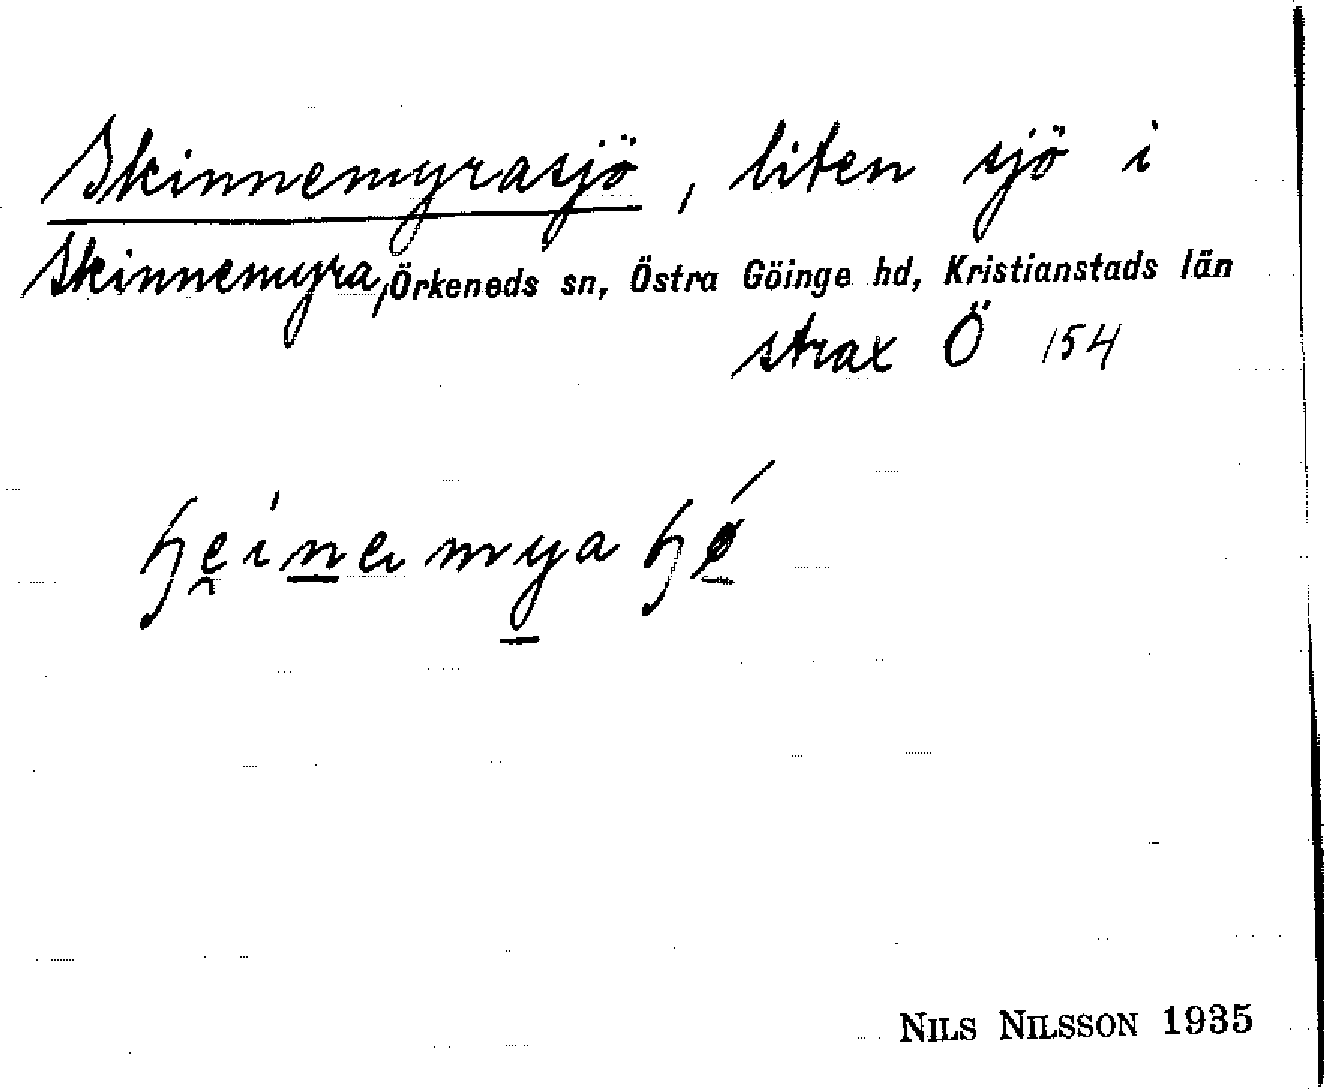 Skinnemyrasjö, liten sjö i
Skinnemyra, Örkeneds sn, Östra Göinge hd, Kristianstads län
strax Ö 154
NILS NILSSON 1935